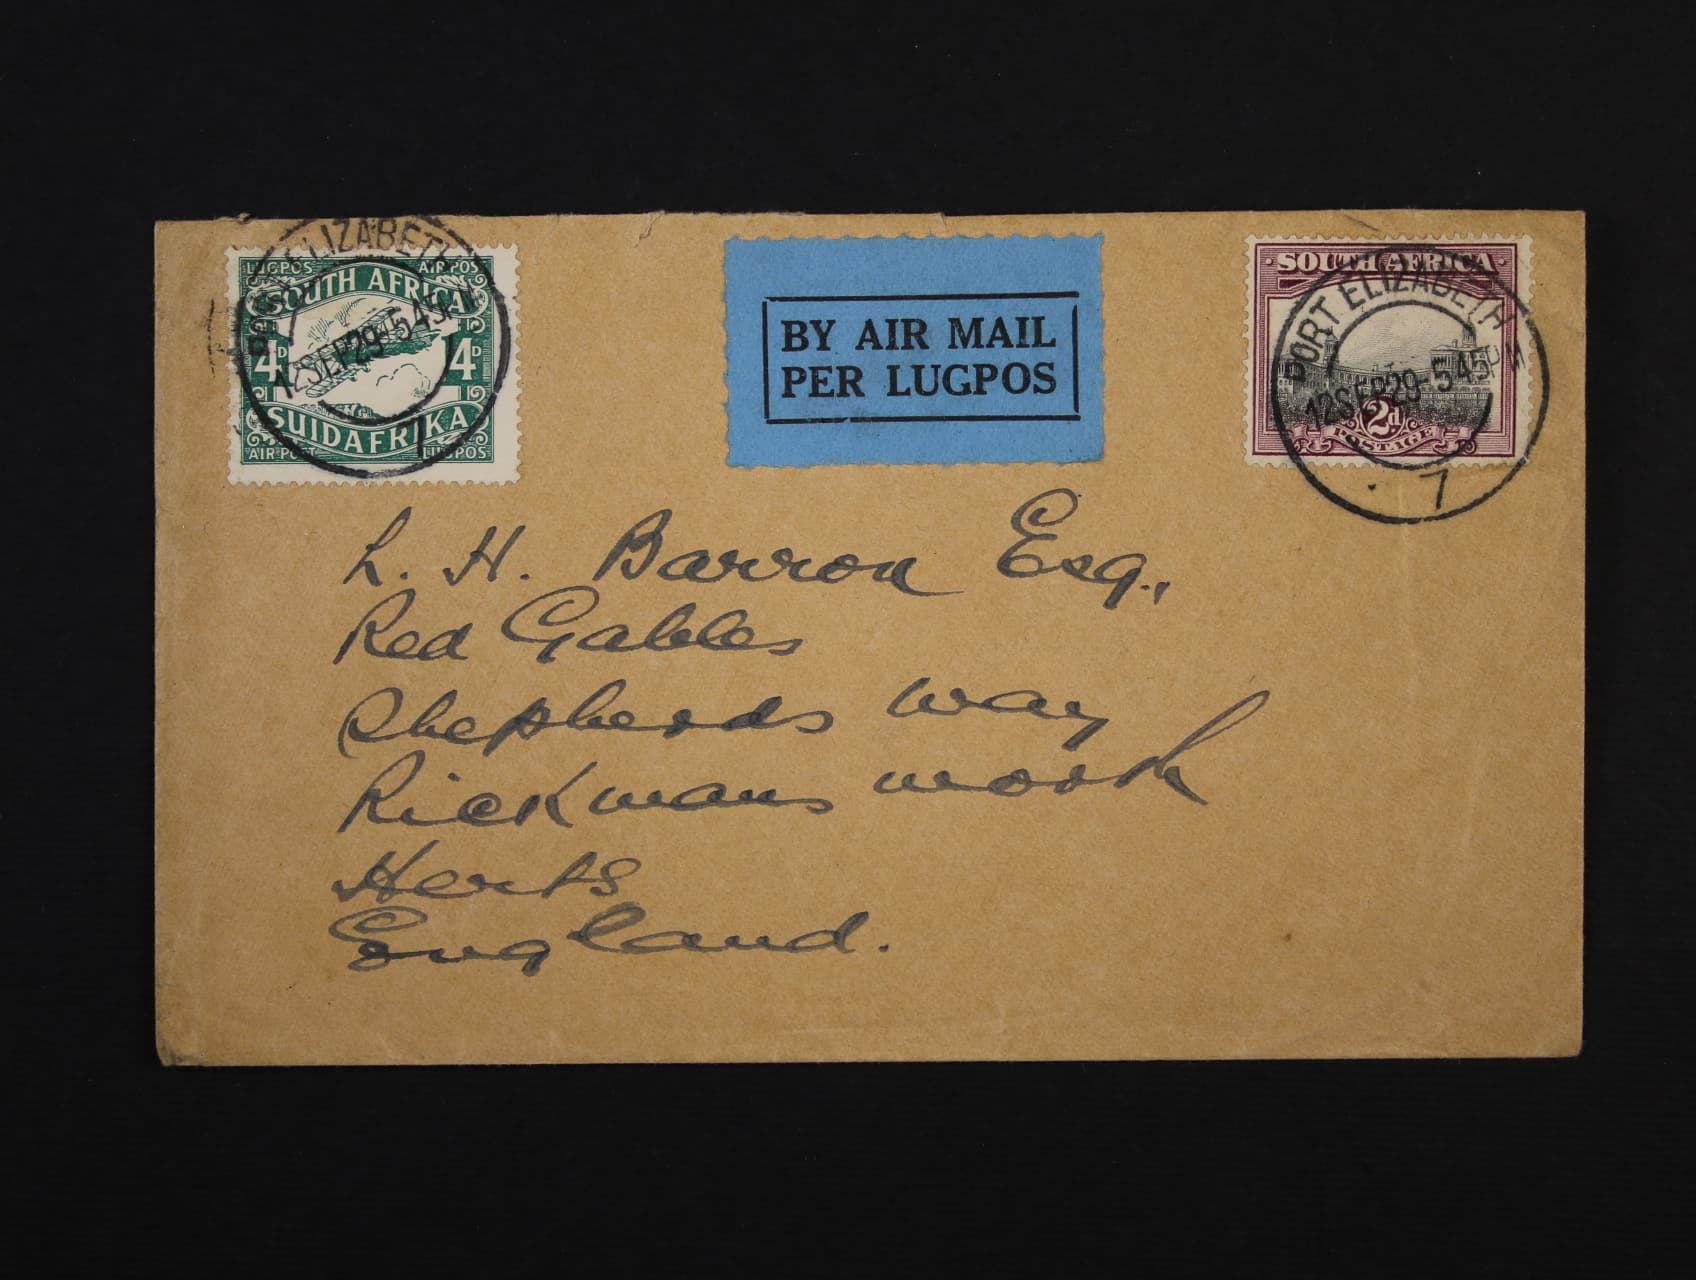 PORT ELIZABETH
12 SEP 29-5 45
7
LUGPOS AIR POS
SOUTH AFRICA
4D 4D
SUIDAFRIKA
AIR POST LUGPOS
BY AIR MAIL
PER LUGPOS
SOUTH AFRICA
PORT ELIZABETH
12 SEP 29-5 45 PM
2d
POSTAGE
7
L. H. Barron Esq.,
Red Gables
Shepherds Way
Rickmans worth
Herts
England.